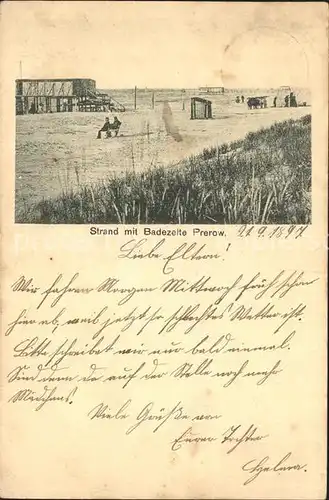 Strand mit Badezelte Prerow. 21.9.1897
Liebe Eltern!
Wir fahren Morgen Mittwoch früh schon
hier ab, weil jetzt so schlechtes Wetter ist.
Bitte schreibet mir nur bald einmal.
Sind denn da auf der Stelle noch mehr
Mädchens.
Viele Grüße von
Eurer Tochter
Helena.